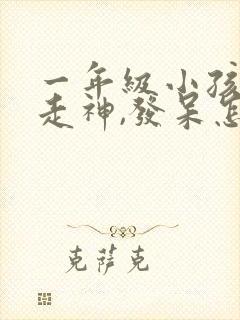 一年級小孩
走神,發呆怎
克薩克